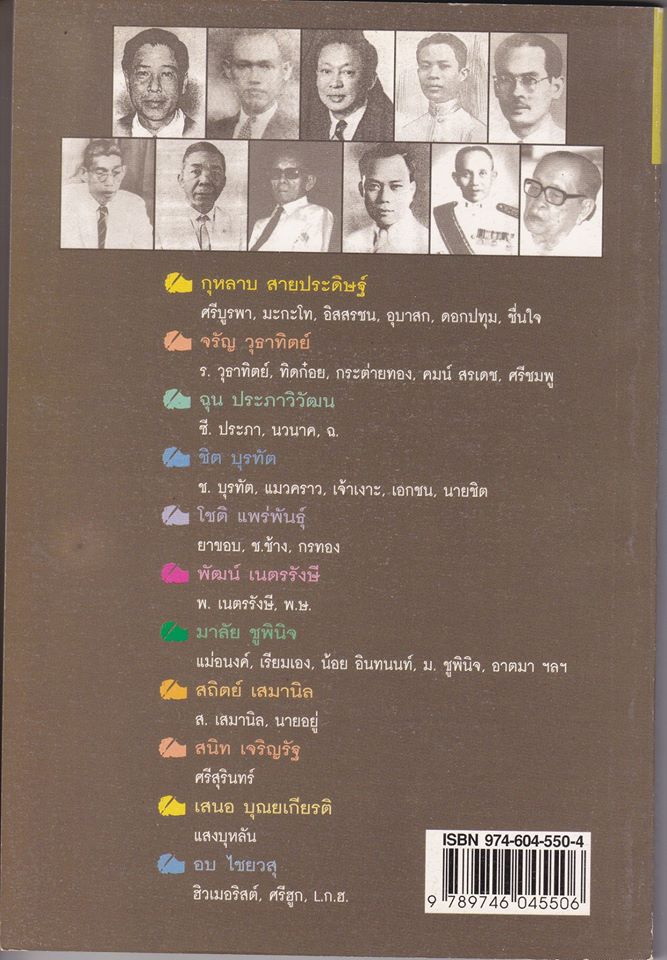 กุหลาบ สายประดิษฐ์
ศรีบูรพา, มะกะโท, อิสสรชน, อุบาสก, ดอกปทุม, ชื่นใจ
จรัญ วุธาทิตย์
ร. วุธาทิตย์, ทิดก๋อย, กระต่ายทอง, คมน์ สรเดช, ศรีชมพู
ฉุน ประภาวิวัฒน
ซี. ประภา, นวนาค, ฉ.
ชิต บุรทัต
ช. บุรทัต, แมวคราว, เจ้าเงาะ, เอกชน, นายชิต
โชติ แพร่พันธุ์
ยาขอบ, ช.ช้าง, กรทอง
พัฒน์ เนตรรังษี
พ. เนตรรังษี, พ.ษ.
มาลัย ชูพินิจ
แม่อนงค์, เรียมเอง, น้อย อินทนนท์, ม. ชูพินิจ, อาตมา ฯลฯ
สถิตย์ เสมานิล
ส. เสมานิล, นายอยู่
สนิท เจริญรัฐ
ศรีสุรินทร์
เสนอ บุณยเกียรติ
แสงบุหลัน
อบ ไชยวสุ
ฮิวเมอริสต์, ศรีฮูก, L.ก.ฮ.
ISBN 974-604-550-4
9 789746 045506